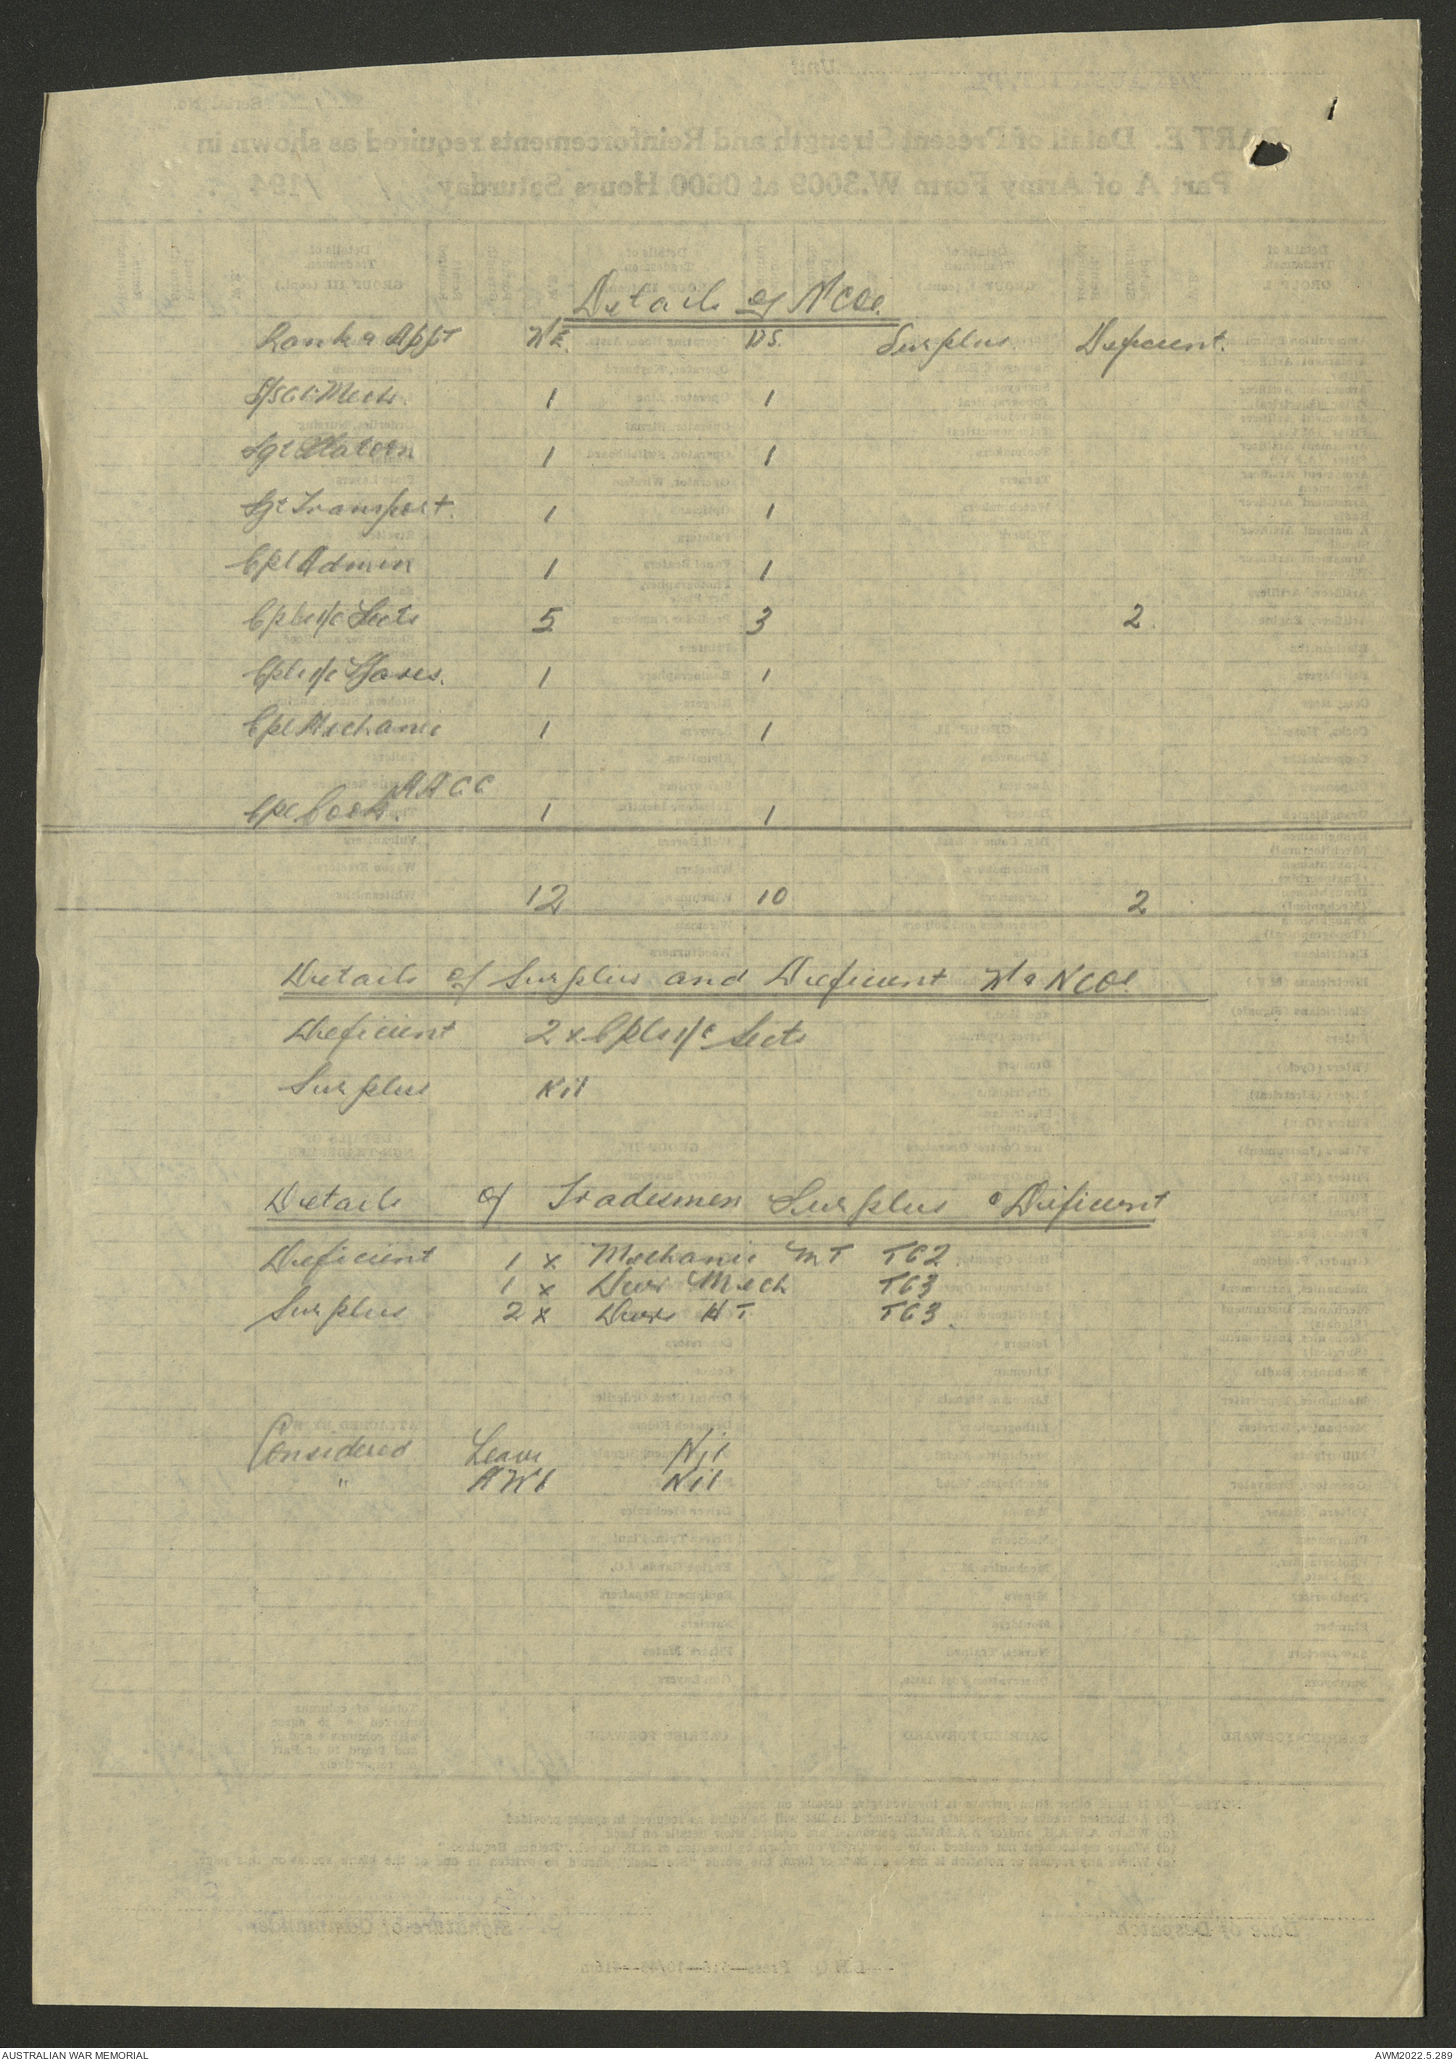 Details of NCOs.
Rank & Appt W.E. P.S. Surplus. Deficient.
S/Sgt Mech. 1 1
Sgt Platoon 1 1
Sgt Transport. 1 1
Cpl Admin 1 1
Cpls i/c Sects 5 3 2.
Cpls i/c 1 1
Cpl Mechanic 1 1
AACC
Cpl Cook. 1 1
12 10 2
Details of Surplus and Deficient W & NCOs.
Deficient 2 x Cpls i/c Sects
Surplus Nil
Details of Tradesmen Surplus & Deficient
Deficient 1 x Mechanic MT TG2
1 x Dvr Mech TG3
Surplus 2 x Dvrs HT TG3.
Considered Leave Nil
" AWL Nil
AUSTRALIAN WAR MEMORIAL
AWM2022.5.289